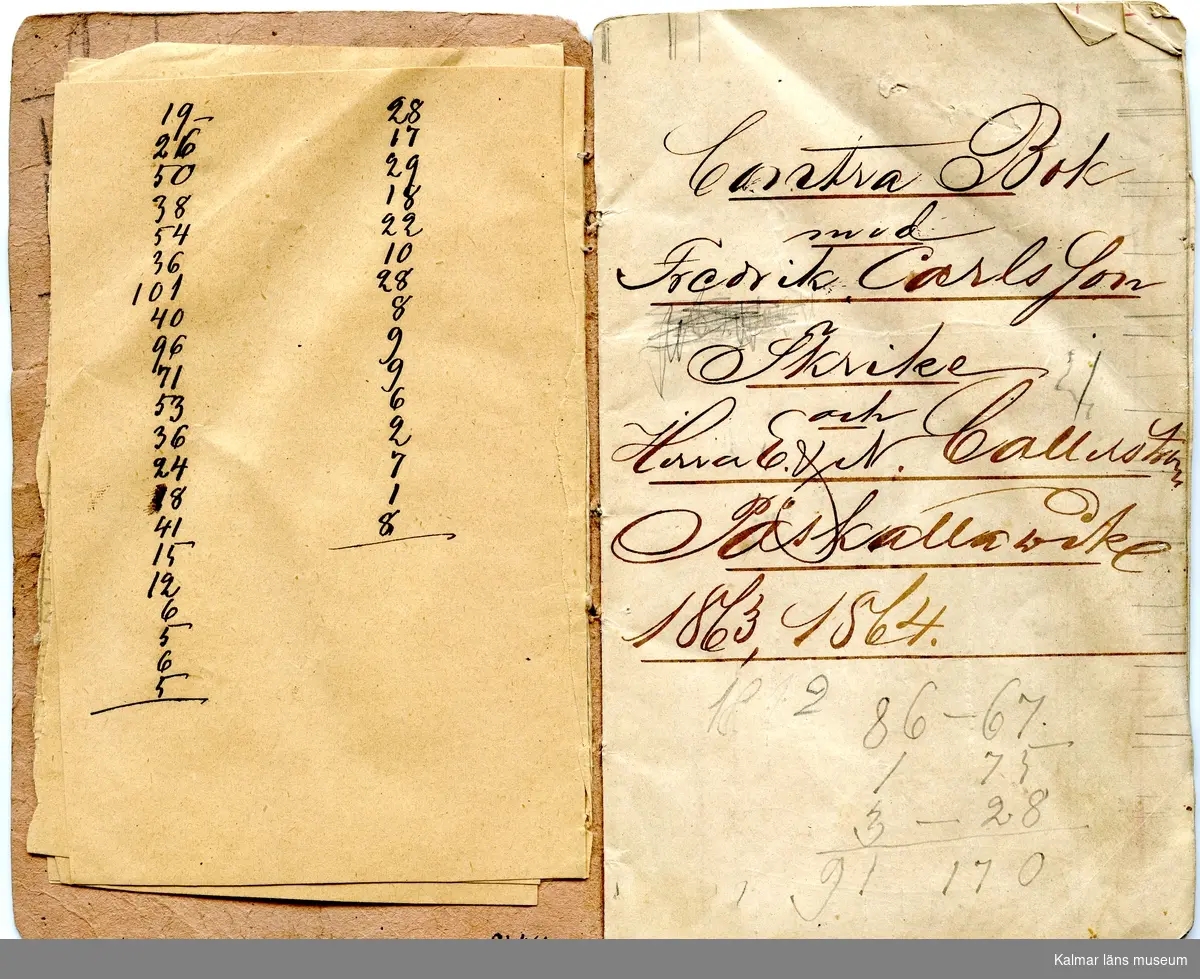 19
26
50
38
54
36
101
40
96
71
53
36
24
18
41
15
12
6
5
6
5
28
17
29
18
22
10
28
8
9
9
6
2
7
1
8
Contra Bok
med
Fredrik Carlsson
Ekrike
och
Herra E. & N. Callerström
Påskallawike
1863, 1864.
86 — 67.
1 75
3 — 28
91 170
Kalmar läns museum